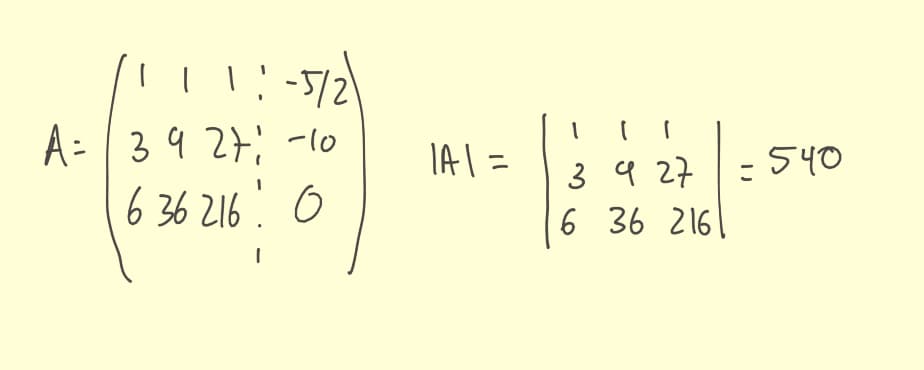 A = ( 1 1 1 ¦ -5/2
3 9 27 ¦ -10
6 36 216 ¦ 0 )
|A| = | 1 1 1
3 9 27
6 36 216 | = 540